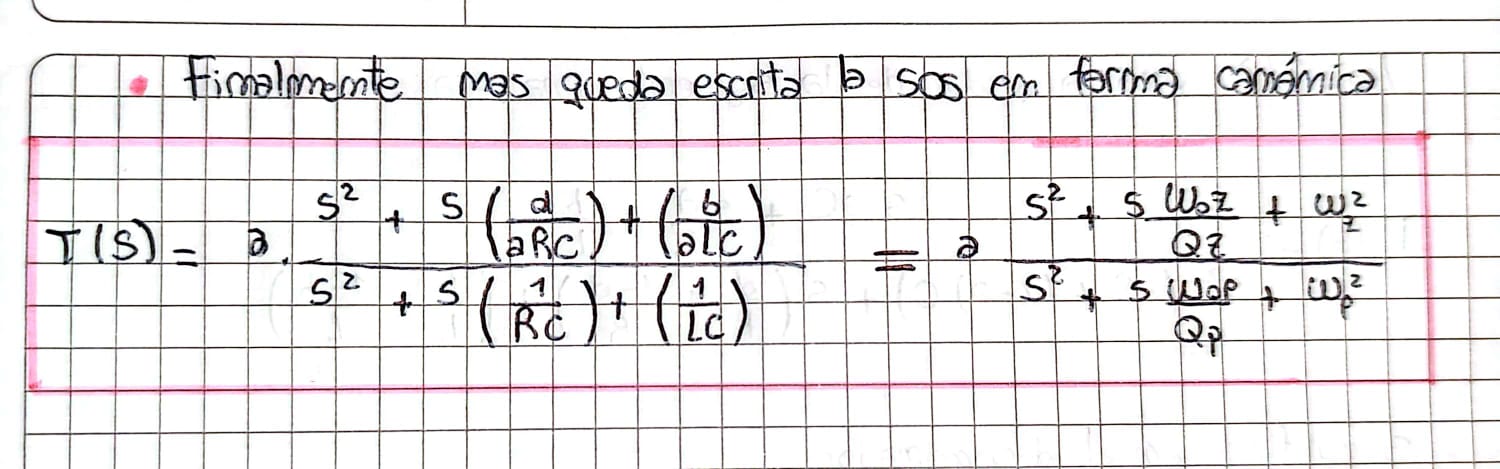 • Finalmente nos queda escrita la SOS en forma canónica
T(S) = a . \frac{S^2 + S (\frac{d}{aRC}) + (\frac{b}{aLC})}{S^2 + S (\frac{1}{RC}) + (\frac{1}{LC})} = a \frac{S^2 + S \frac{\omega_{oz}}{Q_z} + \omega_z^2}{S^2 + S \frac{\omega_{op}}{Q_p} + \omega_p^2}